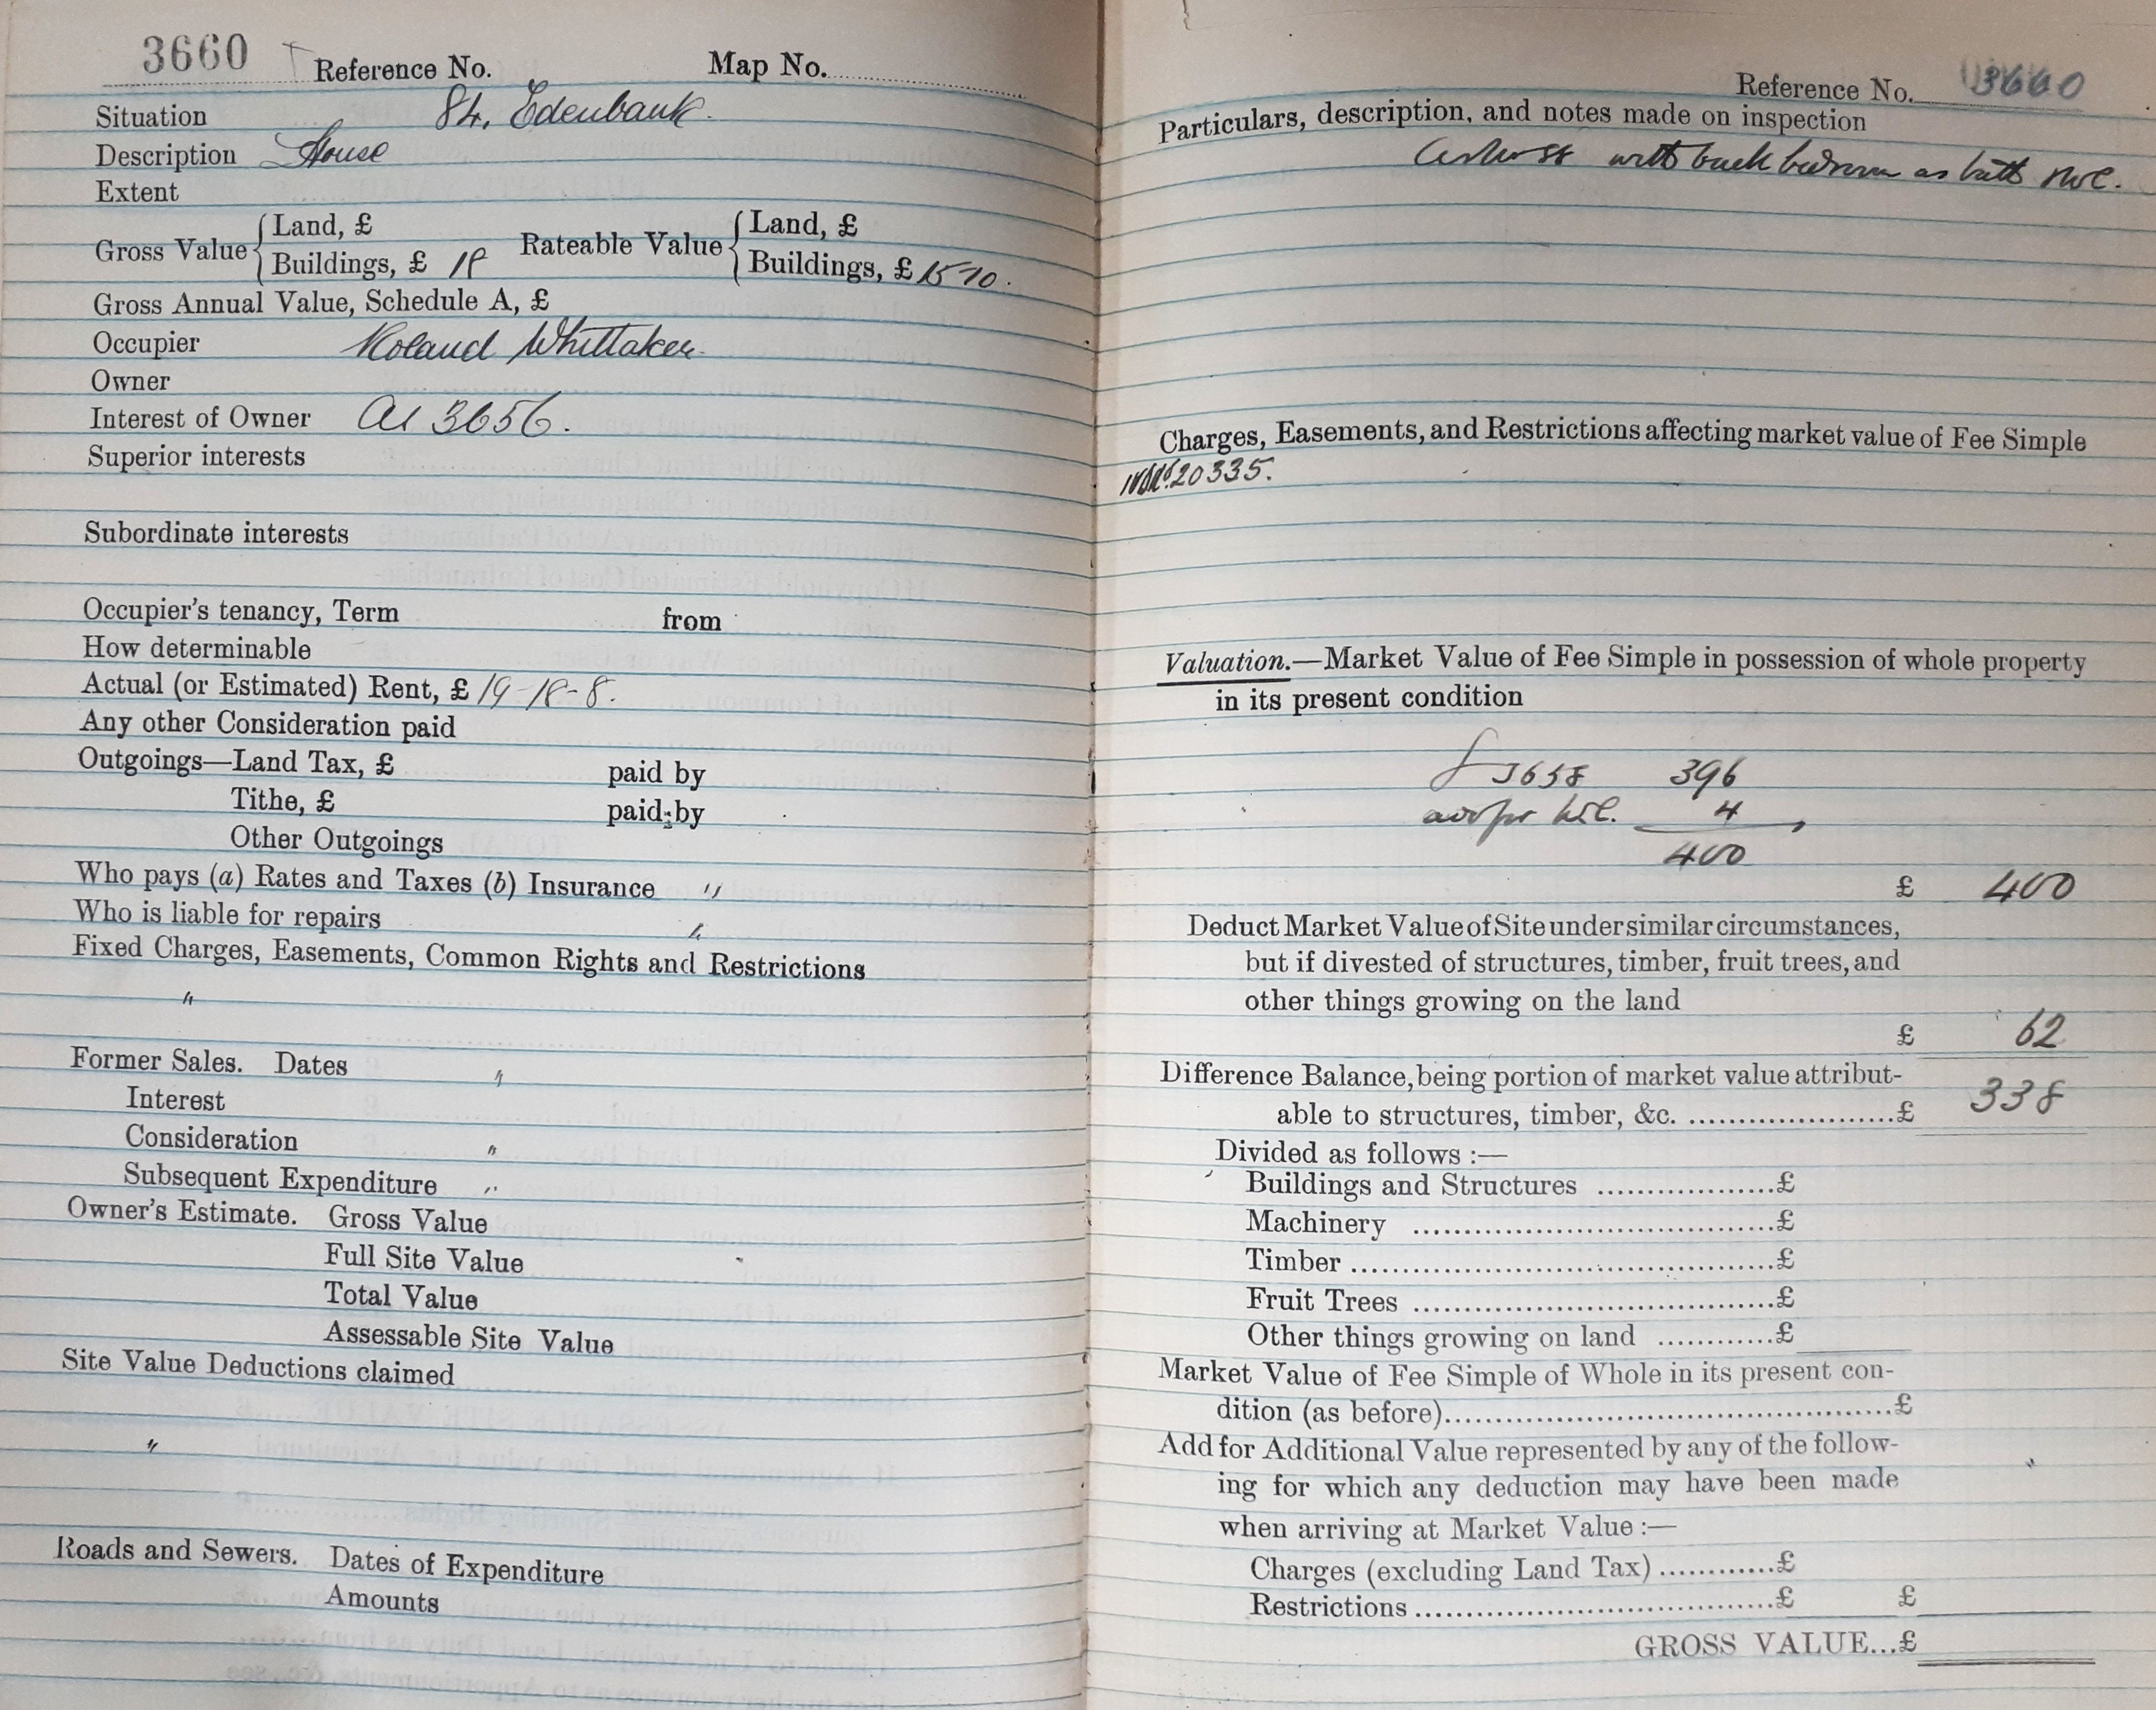 3660 Reference No. Map No.
Situation 84, Edenbank.
Description House
Extent
Gross Value Land, £ Rateable Value Land, £
Buildings, £ 18 Buildings, £ 15-10.
Gross Annual Value, Schedule A, £
Occupier Roland Whittaker.
Owner
Interest of Owner As 3656.
Superior interests
Subordinate interests
Occupier's tenancy, Term from
How determinable
Actual (or Estimated) Rent, £ 19-18-8.
Any other Consideration paid
Outgoings—Land Tax, £ paid by
Tithe, £ paid by
Other Outgoings
Who pays (a) Rates and Taxes (b) Insurance "
Who is liable for repairs "
Fixed Charges, Easements, Common Rights and Restrictions
"
Former Sales. Dates "
Interest
Consideration "
Subsequent Expenditure "
Owner's Estimate. Gross Value
Full Site Value
Total Value
Assessable Site Value
Site Value Deductions claimed
"
Roads and Sewers. Dates of Expenditure
Amounts
Reference No. 3660
Particulars, description, and notes made on inspection
with back bedroom as bath
Charges, Easements, and Restrictions affecting market value of Fee Simple
20335.
Valuation.—Market Value of Fee Simple in possession of whole property
in its present condition
3658 396
add for W.C. 4
400
£ 400
Deduct Market Value of Site under similar circumstances,
but if divested of structures, timber, fruit trees, and
other things growing on the land
£ 62
Difference Balance, being portion of market value attribut-
able to structures, timber, &c. ....................£ 338
Divided as follows :—
Buildings and Structures ..................£
Machinery ....................................£
Timber ..........................................£
Fruit Trees ....................................£
Other things growing on land ............£
Market Value of Fee Simple of Whole in its present con-
dition (as before)............................................£
Add for Additional Value represented by any of the follow-
ing for which any deduction may have been made
when arriving at Market Value :—
Charges (excluding Land Tax) ............£
Restrictions ....................................£ £
GROSS VALUE...£